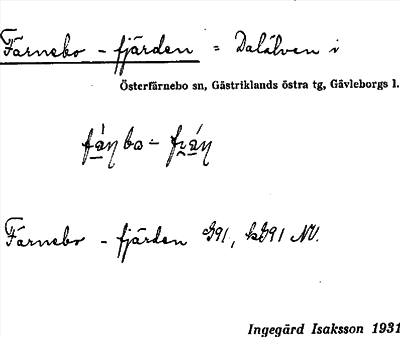 Färnebo - fjärden = Dalälven i
Österfärnebo sn, Gästriklands östra tg, Gävleborgs l.
Färnebo - fjärden G91, NV.
Ingegärd Isaksson 1931